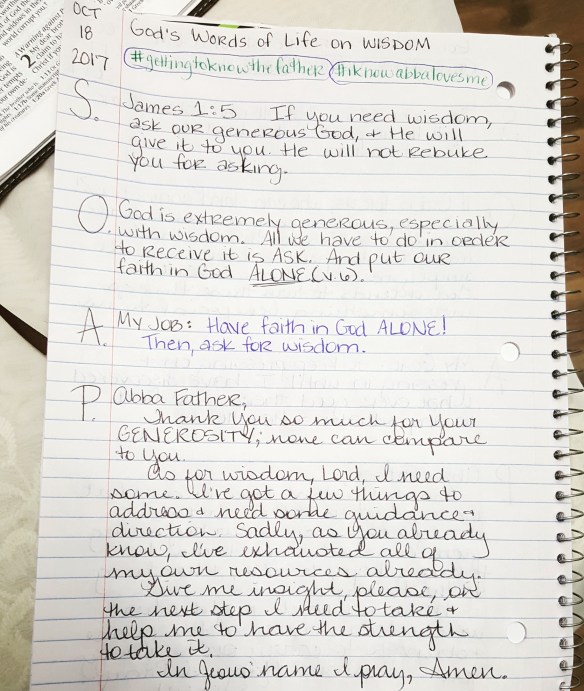 OCT
18
2017
God's Words of Life on WISDOM
#gettingtoknowthefather #iknowabbalovesme
S. James 1:5 If you need wisdom,
ask our generous God, + He will
give it to you. He will not rebuke
you for asking.
O. God is extremely generous, especially
with wisdom. All we have to do in order
to receive it is ASK. And put our
faith in God ALONE (v.6).
A. My Job: Have faith in God ALONE!
Then, ask for wisdom.
P. Abba Father,
Thank You so much for Your
GENEROSITY; none can compare
to You.
As for wisdom, Lord, I need
some. I've got a few things to
address + need some guidance +
direction. Sadly, as You already
know, I've exhausted all of
my own resources already.
Give me insight, please, on
the next step I need to take +
help me to have the strength
to take it.
In Jesus' name I pray, Amen.